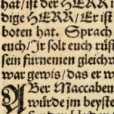 hat/ist der HERR
dige HERR/Er ist
boten hat. Sprach
euch/Jr solt euch rüst
sein fürnemen gleichw
war gewis/das er w
ABer Maccabeu
würde jm beyste